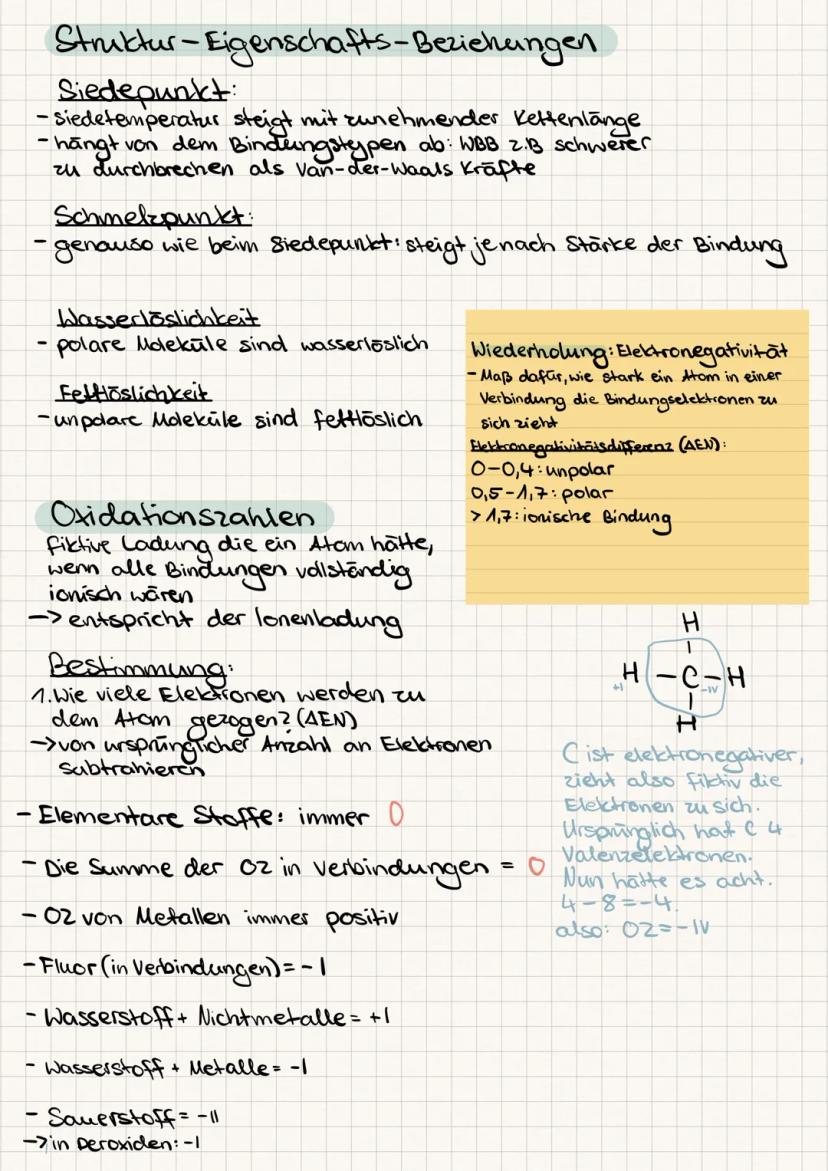 Struktur-Eigenschafts-Beziehungen
Siedepunkt:
- Siedetemperatur steigt mit zunehmender Kettenlänge
- hängt von dem Bindungstypen ab: WBB z.B schwerer
zu durchbrechen als Van-der-Waals Kräfte
Schmelzpunkt:
- genauso wie beim Siedepunkt: steigt je nach Stärke der Bindung
Wasserlöslichkeit
- polare Moleküle sind wasserlöslich
Fettlöslichkeit
- unpolare Moleküle sind fettlöslich
Wiederholung: Elektronegativität
- Maß dafür, wie stark ein Atom in einer
Verbindung die Bindungselektronen zu
sich zieht
Elektronegativitätsdifferenz (ΔEN):
0-0,4: unpolar
0,5-1,7: polar
> 1,7: ionische Bindung
Oxidationszahlen
fiktive Ladung die ein Atom hätte,
wenn alle Bindungen vollständig
ionisch wären
-> entspricht der Ionenladung
Bestimmung:
1. Wie viele Elektronen werden zu
dem Atom gezogen? (ΔEN)
-> von ursprünglicher Anzahl an Elektronen
subtrahieren
H
H - C - H
+I -IV
H
C ist elektronegativer,
zieht also fiktiv die
Elektronen zu sich.
Ursprünglich hat C 4
Valenzelektronen.
Nun hätte es acht.
4-8=-4.
also: OZ=-IV
- Elementare Stoffe: immer 0
- Die Summe der OZ in Verbindungen = 0
- OZ von Metallen immer positiv
- Fluor (in Verbindungen) = -I
- Wasserstoff + Nichtmetalle = +I
- Wasserstoff + Metalle = -I
- Sauerstoff = -II
-> in Peroxiden: -I